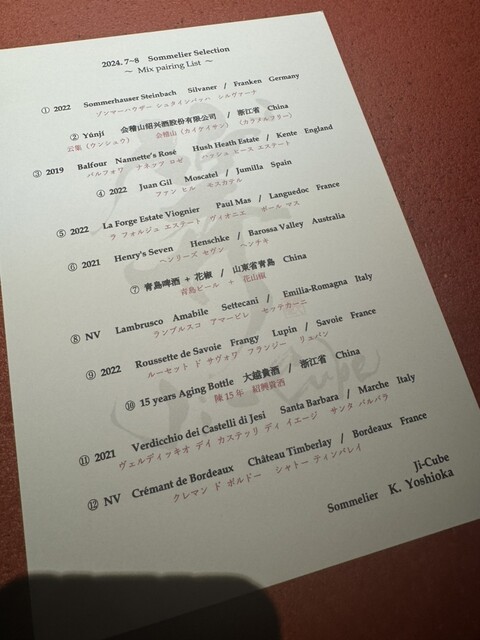 2024. 7~8 Sommelier Selection
～ Mix pairing List ～
① 2022 Sommerhauser Steinbach Silvaner / Franken Germany
ゾンマーハウザー シュタインバッハ シルヴァーナ
② Yúnjí 会稽山绍兴酒股份有限公司 / 浙江省 China
云集 (ウンシュウ) 会稽山 (カイケイザン) (カラヌエフラー)
③ 2019 Balfour Nannette's Rosé Hush Heath Estate / Kente England
バルフォワ ナネッツ ロゼ ハッシュ ヒース エステート
④ 2022 Juan Gil Moscatel / Jumilla Spain
ファン ヒル モスカテル
⑤ 2022 La Forge Estate Viognier Paul Mas / Languedoc France
ラ フォルジュ エステート ヴィオニエ ポール マス
⑥ 2021 Henry's Seven Henschke / Barossa Valley Australia
ヘンリーズ セヴン ヘンチキ
⑦ 青島啤酒 + 花椒 / 山東省青島 China
青島ビール + 花山椒
⑧ NV Lambrusco Amabile Settecani / Emilia-Romagna Italy
ランブルスコ アマービレ セッテカーニ
⑨ 2022 Roussette de Savoie Frangy Lupin / Savoie France
ルーセット ド サヴォワ フランジー リュパン
⑩ 15 years Aging Bottle 大越貴酒 / 浙江省 China
陳15年 紹興貴酒
⑪ 2021 Verdicchio dei Castelli di Jesi Santa Barbara / Marche Italy
ヴェルディッキオ デイ カステッリ ディ イエージ サンタ バルバラ
⑫ NV Crémant de Bordeaux Château Timberlay / Bordeaux France
クレマン ド ボルドー シャトー ティンバレイ
Ji-Cube
Sommelier K. Yoshioka